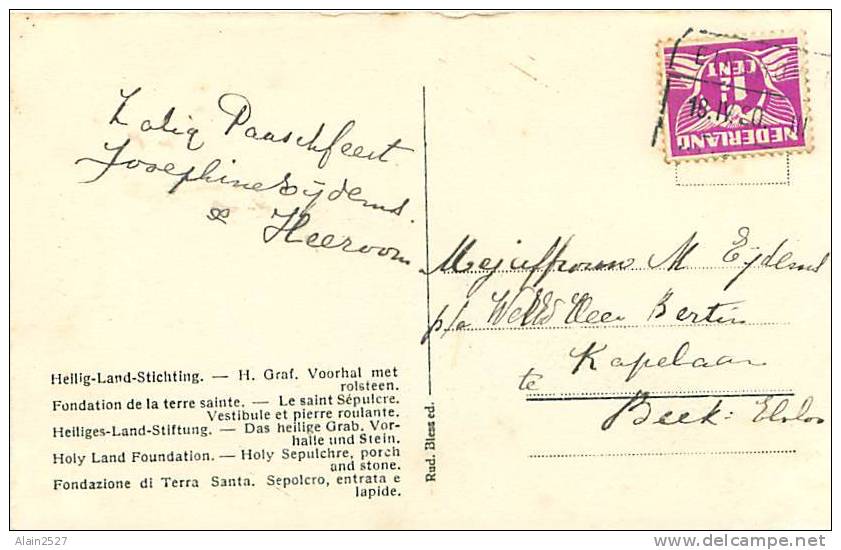 Zalig Paaschfeest
Josephine Eijdems.
& Heeroom
Heilig-Land-Stichting. — H. Graf. Voorhal met
rolsteen.
Fondation de la terre sainte. — Le saint Sépulcre.
Vestibule et pierre roulante.
Heiliges-Land-Stiftung. — Das heilige Grab. Vor-
halle und Stein.
Holy Land Foundation. — Holy Sepulchre, porch
and stone.
Fondazione di Terra Santa. Sepolcro, entrata e
lapide.
Rud. Bless ed.
CENT
NEDERLAND
18.IV.30
Mejuffrouw M Eijdems
p/a Heer Bertin
Kapelaan
te
Beek: Elsloo
Alain2527
delcampe.net